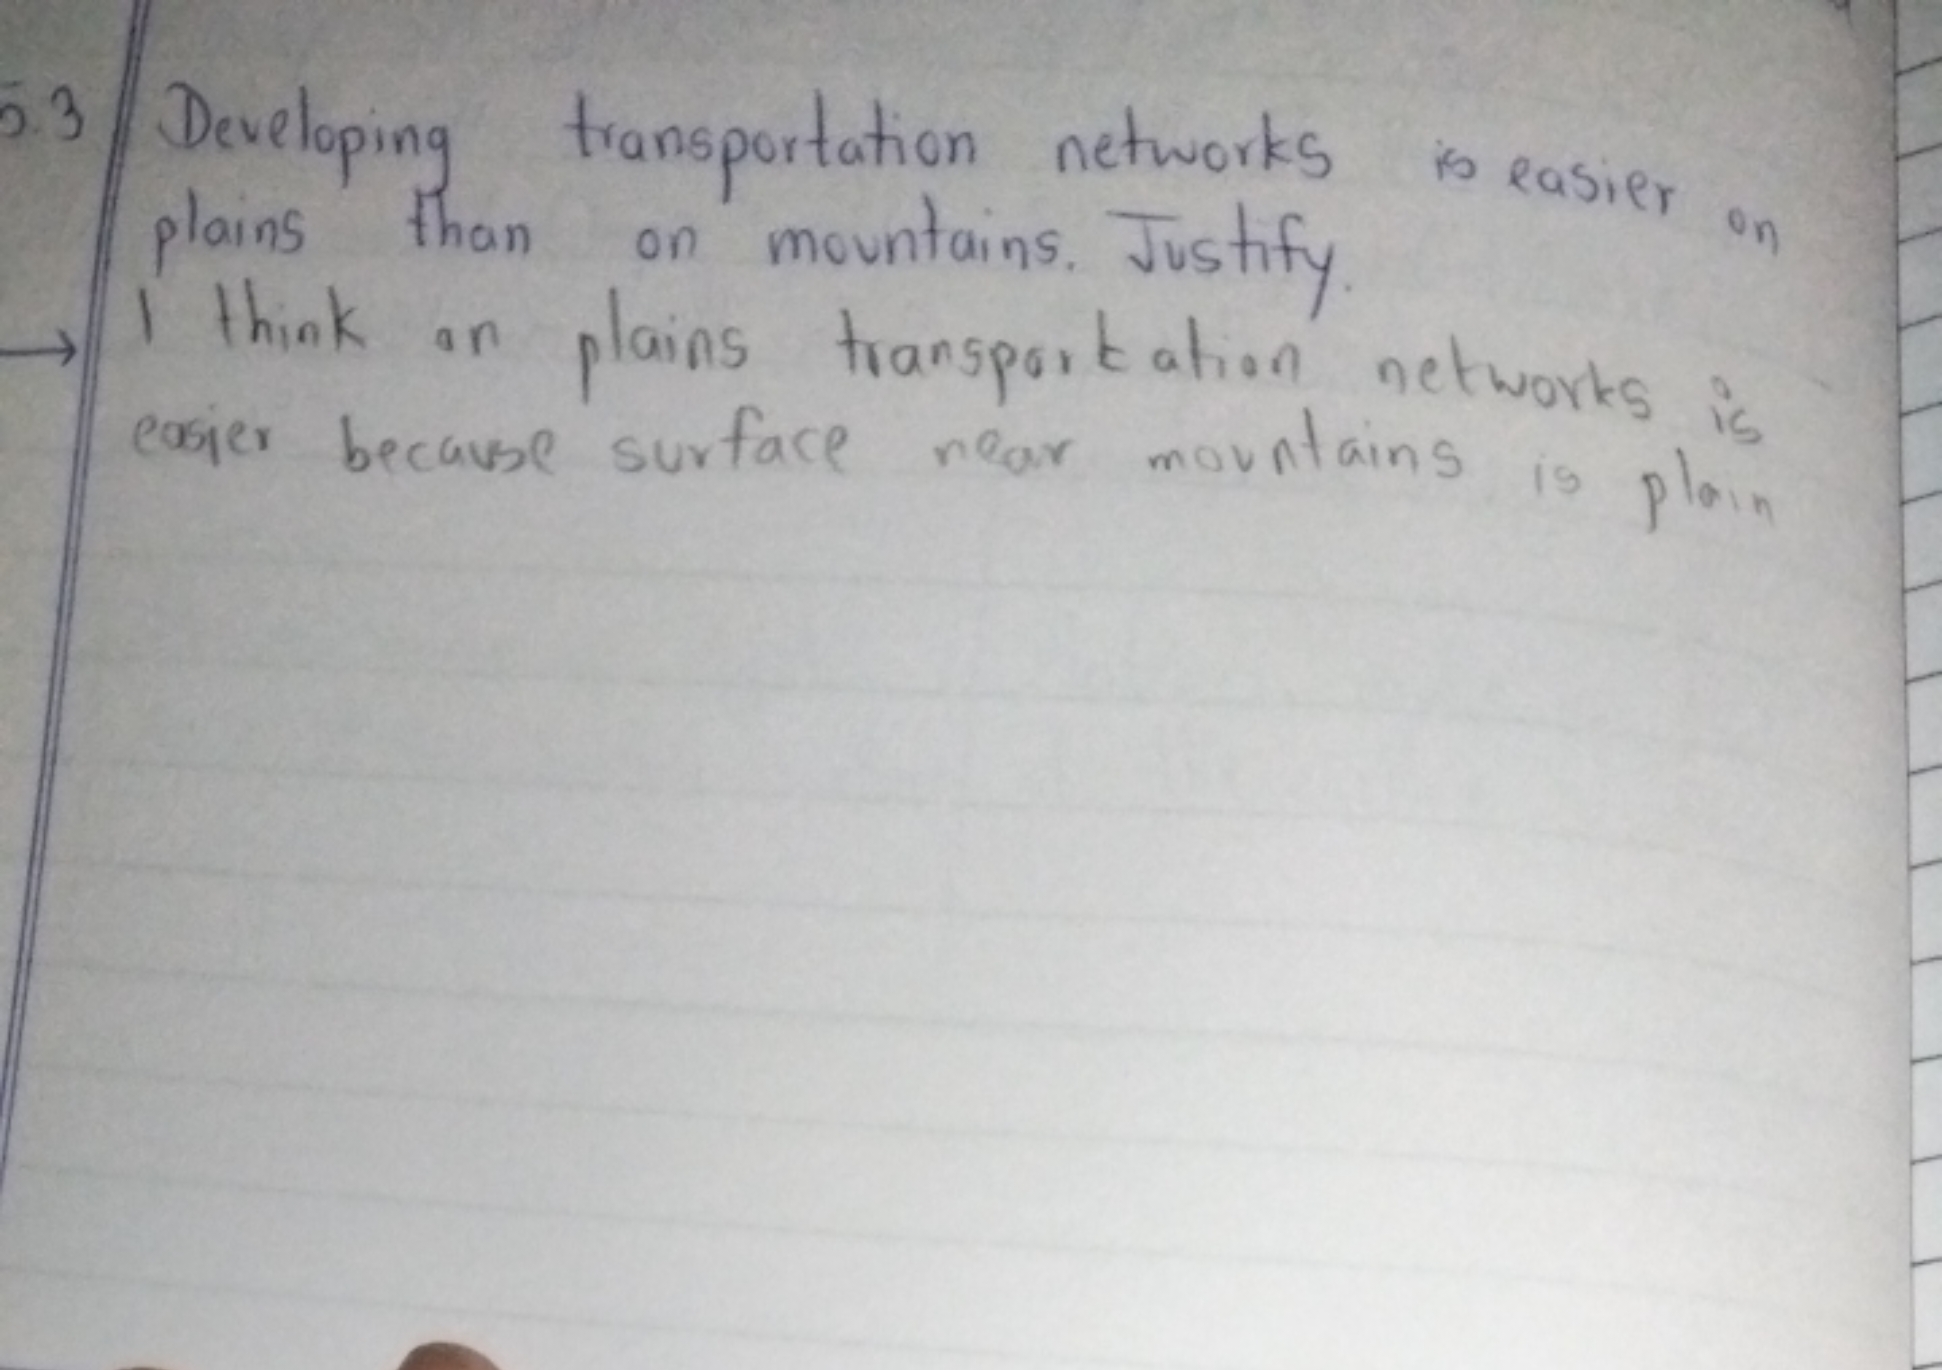 5.3 Developing transportation networks is easier on
plains than on mountains. Justify.
→ I think on plains transportation networks is
easier because surface near mountains is plain